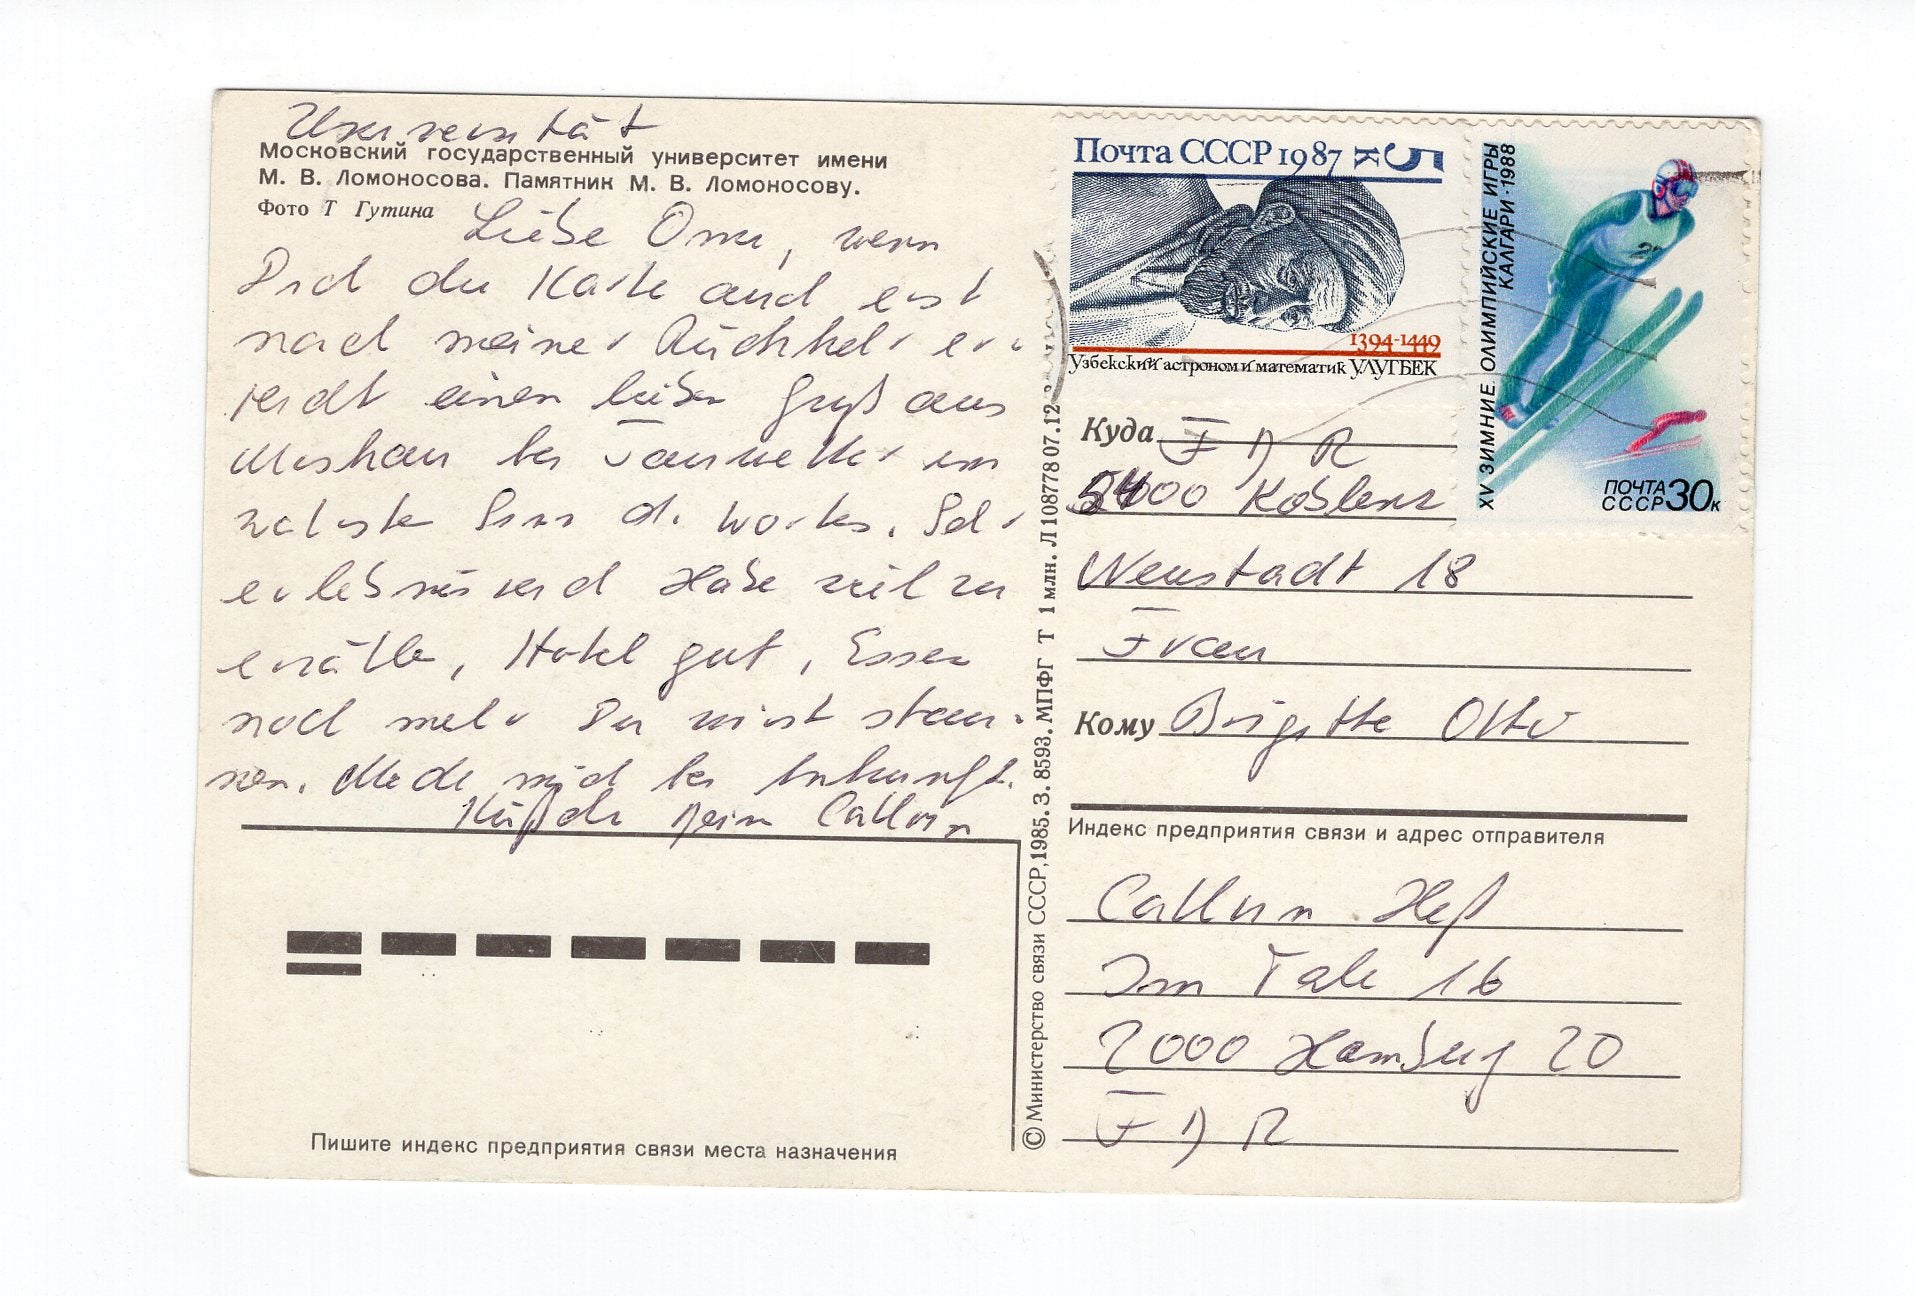 Universität
Московский государственный университет имени
М. В. Ломоносова. Памятник М. В. Ломоносову.
Фото Т Гутина
Liebe Oma, wenn
Dich die Karte auch erst
nach meiner Rückkehr er-
reicht einen lieben Gruß aus
Moskau bei Tauwetter im
wahrsten Sinn d. Wortes. Sehr
erlebnisreich Habe viel zu
erzählen, Hotel gut, Essen
noch mehr Du wirst stau-
nen. Melde mich bei Ankunft.
Küßchen Dein Callum
Пишите индекс предприятия связи места назначения
© Министерство связи СССР, 1985. З. 8593. МПФГ Т 1 млн. Л 108778 07.12
Почта СССР 1987 5 к
1394-1449
Узбекский астроном и математик УЛУГБЕК
XV ЗИМНИЕ ОЛИМПИЙСКИЕ ИГРЫ
КАЛГАРИ·1988
ПОЧТА
СССР 30к
Куда F D R
5400 Koblenz
Neustadt 18
Frau
Кому Brigitte Otto
Индекс предприятия связи и адрес отправителя
Callum Heß
Im Tale 16
2000 Hamburg 20
F D R